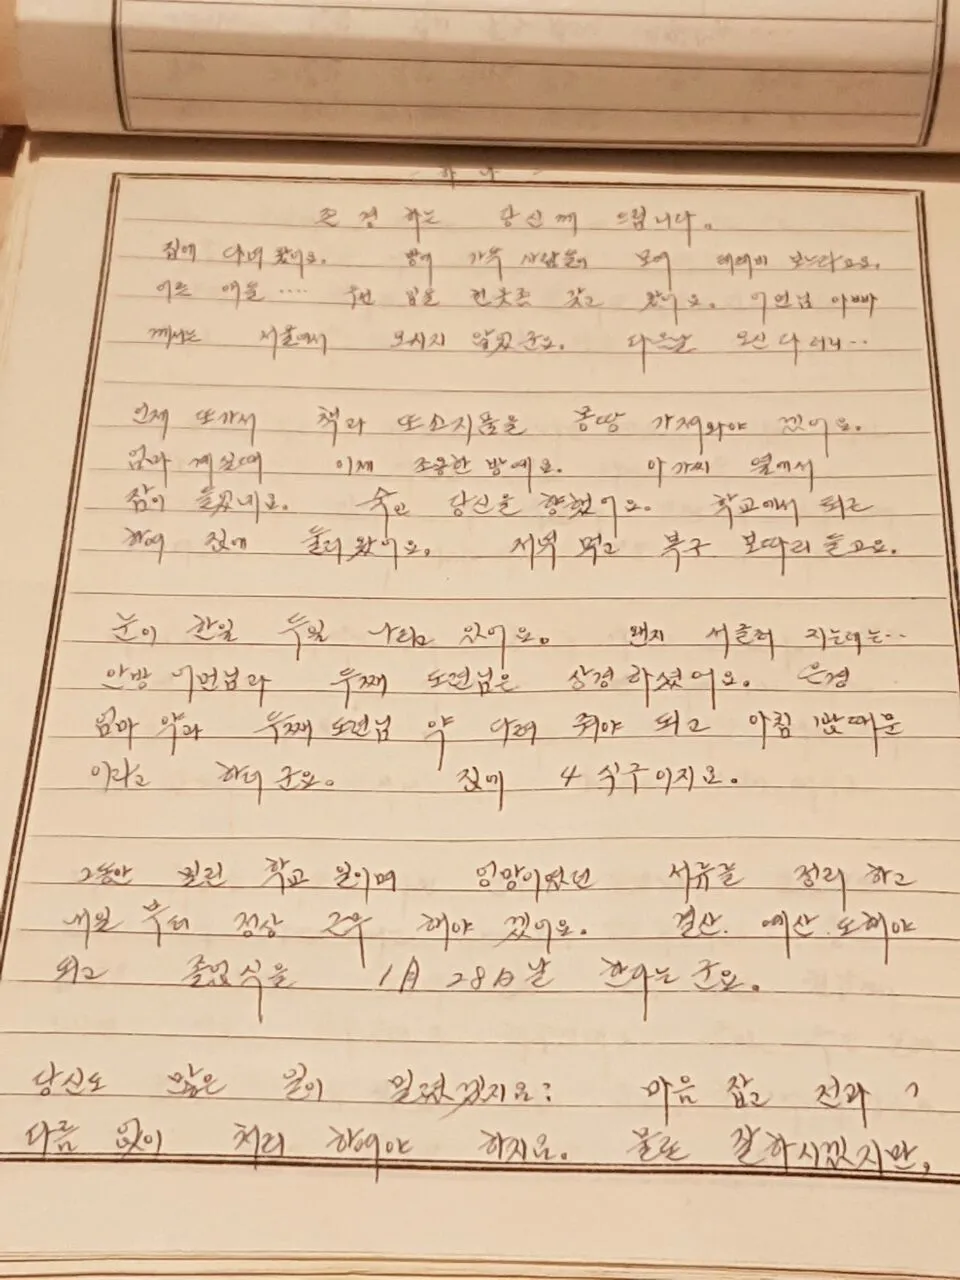 - 하나 -
존경하는 당신께 드립니다.
집에 다녀왔어요. 방에 가족 사람들이 모여 테레비 보느라고요.
어른 애들 .... 우선 입을 헌옷만 갖고 왔어요. 어언님 아빠
께서는 서울에서 오시지 않았군요. 다음날 오신다더니..
언제 또가서 책과 또 소지품을 몽땅 가져와야 겠어요.
엄마 계실때 이제 조용한 방에요. 아가씨 옆에서
잠이 들었네요. 숙고 당신을 향했어요. 학교에서 퇴근
하여 집에 들려 왔어요. 저녁 먹고 북구 보따리 들고요.
눈이 한잎 두잎 나리고 있어요. 왠지 서글퍼 지는데는..
안방 어먼님과 두째 도련님은 상경 하셨어요. 은경
엄마 약과 두째 도련님 약 다려 줘야 되고 아침 밥때문
이라고 하더군요. 집에 4식구 이지요.
그동안 밀린 학교 일이며 엉망이었던 서류를 정리 하고
내일 부터 정상 근무 해야 겠어요. 결산. 예산. 또해야
되고 졸업식을 1月 28日날 한다는군요.
당신도 많은 일이 밀렸겠지요: 마음 잡고 전과 ?
다름 없이 처리 하여야 하지요. 물론 잘하시겠지만,